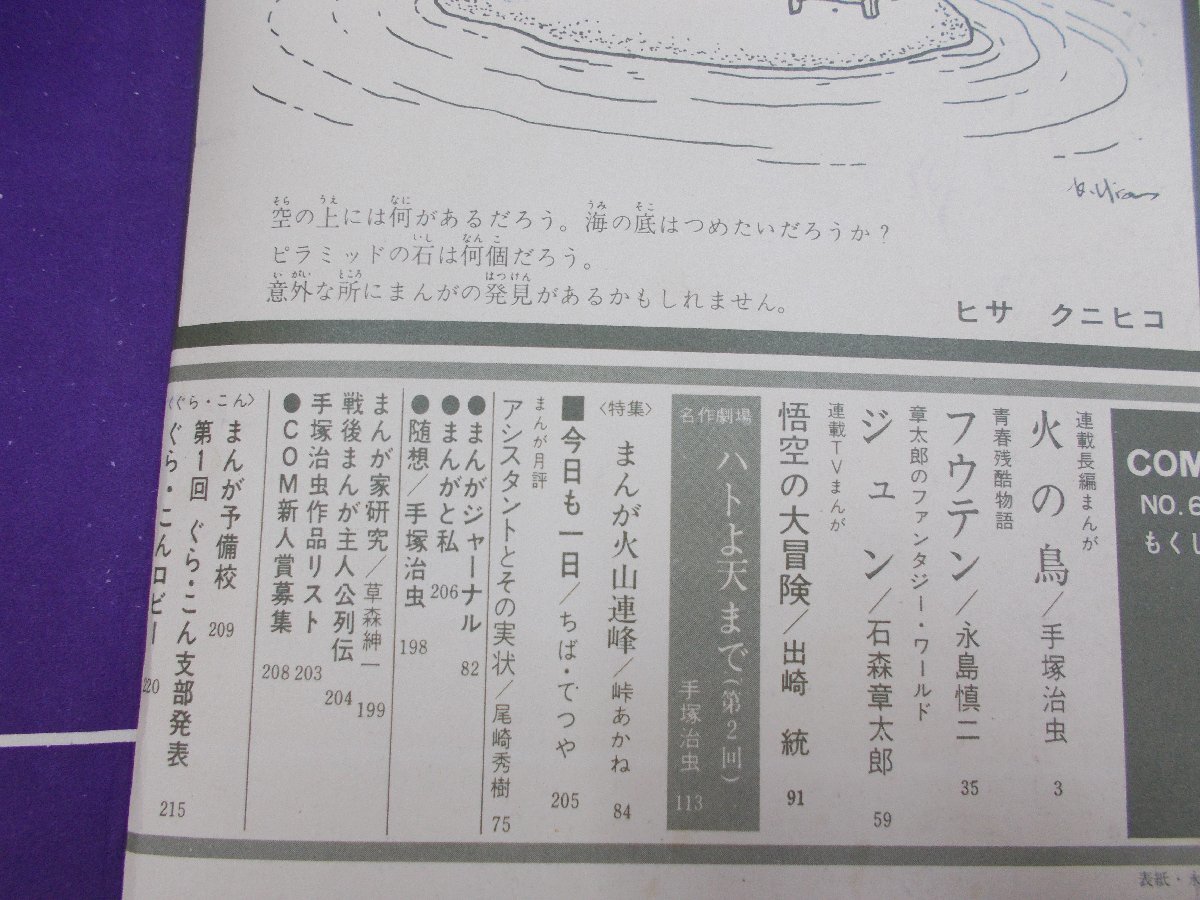 空の上には何があるだろう。海の底はつめたいだろうか？
ピラミッドの石は何個だろう。
意外な所にまんがの発見があるかもしれません。
ヒサ クニヒコ
COM
NO.6
もくじ
連載長編まんが
火の鳥/手塚治虫 3
青春残酷物語
フウテン/永島慎二 35
章太郎のファンタジー・ワールド
ジュン/石森章太郎 59
連載TVまんが
悟空の大冒険/出崎 統 91
名作劇場
ハトよ天まで(第2回) 手塚治虫 113
〈特集〉
まんが火山連峰/峠あかね 84
■今日も一日/ちば・てつや 205
まんが月評
アシスタントとその実状/尾崎秀樹 75
●まんがジャーナル 82
●まんがと私 206
●随想/手塚治虫 198
まんが家研究/草森紳一 199
戦後まんが主人公列伝 204
手塚治虫作品リスト 203
●COM新人賞募集 208
〈ぐら・こん〉
まんが予備校 209
第1回 ぐら・こん支部発表 215
ぐら・こんロビー 220
表紙・